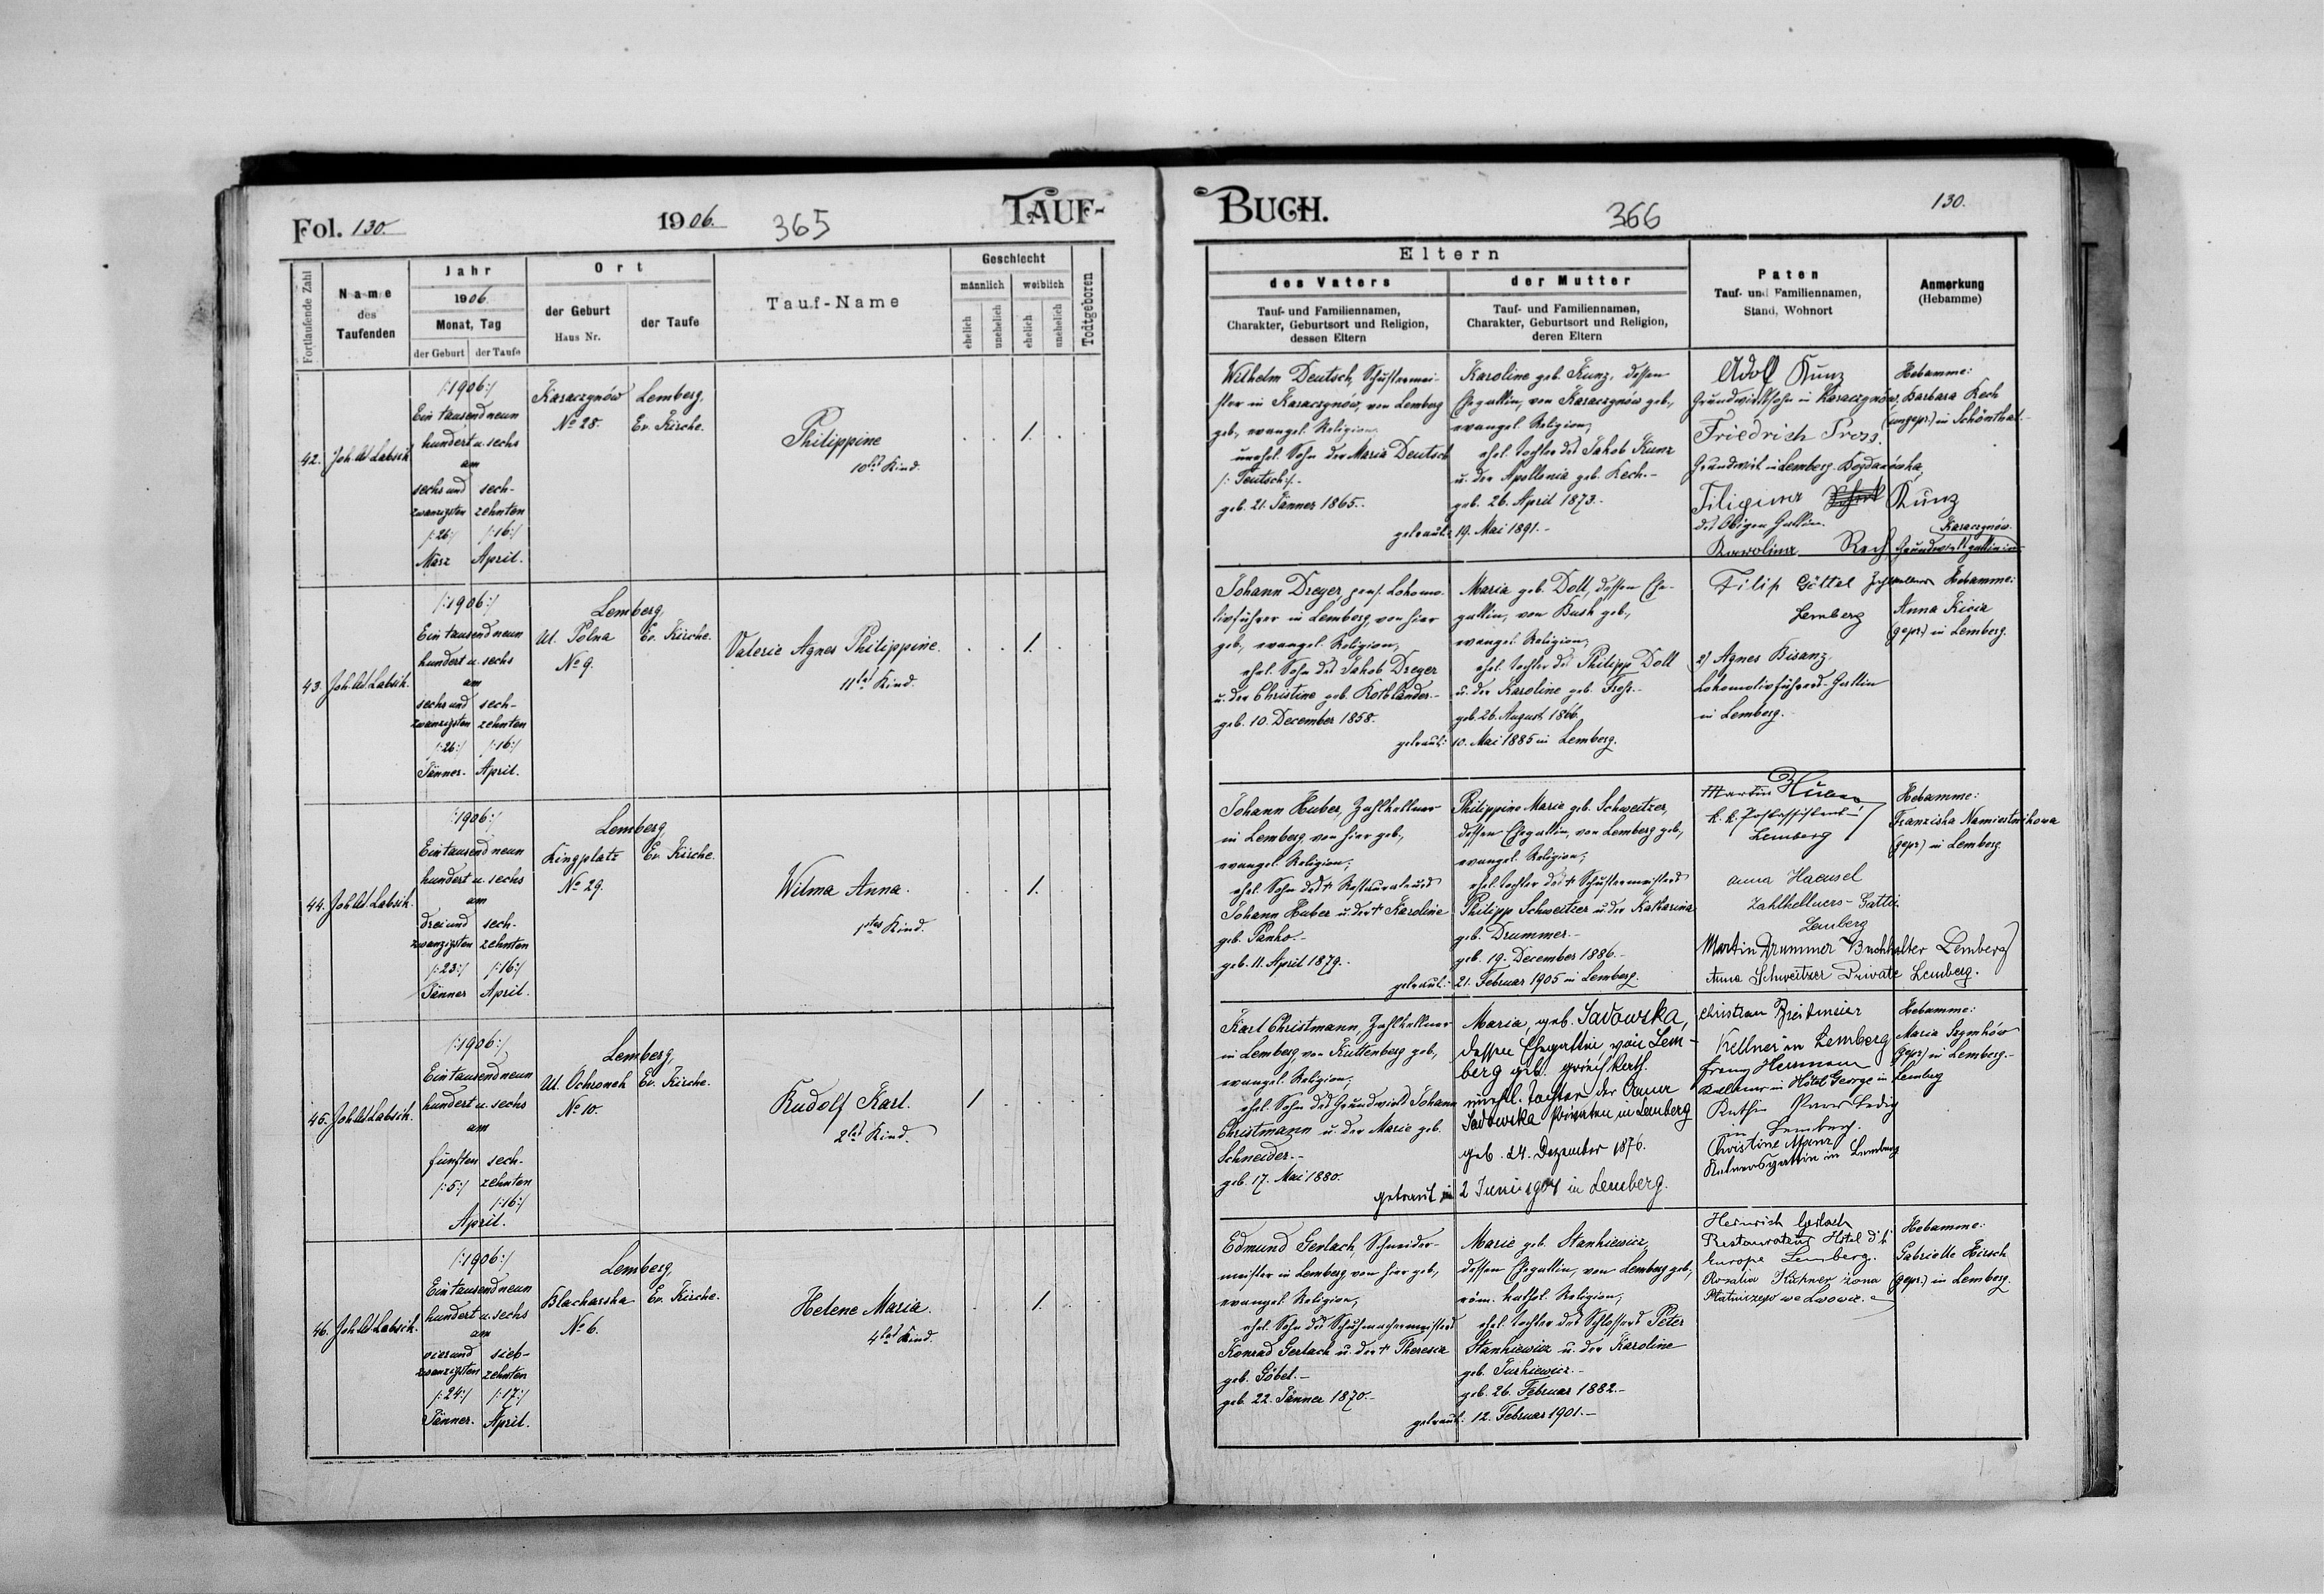 Fol. 130.
1906.
365
TAUF-
Fortlaufende Zahl
Name
des
Taufenden
Jahr
1906
Monat, Tag
der Geburt
der Taufe
Ort
der Geburt
Haus Nr.
der Taufe
Tauf-Name
Geschlecht
männlich
weiblich
ehelich
unehelich
ehelich
unehelich
Todtgeboren
42.
/:1906:/
Ein tausend neun
hundert u. sechs
am
sechs und sech-
zwanzigsten zehnten
/:26:/ /:16:/
März April.
Karaczynów
No 28.
Lemberg,
Ev. Kirche.
Philippine
10tes Kind.
1.
43.
/:1906:/
Ein tausend neun
hundert u. sechs
am
sechs und sech-
zwanzigsten zehnten
/:26:/ /:16:/
Jänner. April.
Lemberg,
Ul. Polna Ev. Kirche.
No 9.
Valerie Agnes Philippine.
11tes Kind.
1.
44.
/:1906:/
Ein tausend neun
hundert u. sechs
am
drei und sech-
zwanzigsten zehnten
/:23:/ /:16:/
Jänner April.
Lemberg,
Ringplatz Ev. Kirche.
No 29.
Wilma Anna.
1stes Kind.
1.
45.
/:1906:/
Ein tausend neun
hundert u. sechs
am
fünften sech-
/:5:/ zehnten
/:16:/
April.
Lemberg,
Ul. Ochronek Ev. Kirche.
No 10.
Rudolf Karl.
2tes Kind.
1
46.
/:1906:/
Ein tausend neun
hundert u. sechs
am
vier und sieb-
zwanzigsten zehnten
/:24:/ /:17:/
Jänner. April.
Lemberg,
Blacharska Ev. Kirche.
No 6.
Helene Maria.
4tes Kind.
1.
BUCH.
366
130.
Eltern
des Vaters
Tauf- und Familiennamen,
Charakter, Geburtsort und Religion,
dessen Eltern
der Mutter
Tauf- und Familiennamen,
Charakter, Geburtsort und Religion,
deren Eltern
Paten
Tauf- und Familiennamen,
Stand, Wohnort
Anmerkung
(Hebamme)
Wilhelm Deutsch, Schustermei-
ster in Karaczynów, von Lemberg
geb., evangel. Religion;
unehel. Sohn der Maria Deutsch
/: Teutsch :/.-
geb. 21. Jänner 1865.-
getraut:
Karoline geb. Kunz, dessen
Ehegattin, von Karaczynów geb.,
evangel. Religion;
ehel. Tochter des Jakob Kunz
u. der Apollonia geb. Kech.-
geb. 26. April 1873.-
19. Mai 1891.-
Adolf Kunz
Grundwirtssohn in Karaczynów.
Friedrich Pross.
Grundwirt in Lemberg-Bogdanówka
Kunz
des Obigen Gattin.
Karolina Rech Grundwirtsgattin in
Karaczynów.
Hebamme:
Barbara Kech
(ungepr.) in Schönthal.
Johann Dreyer, pens. Lokomo-
tivführer in Lemberg, von hier
geb., evangel. Religion;
ehel. Sohn des Jakob Dreyer
u. der Christine geb. Rothländer.-
geb. 10. December 1858.
getraut:
Maria geb. Doll, dessen Ehe-
gattin, von Busk geb.,
evangel. Religion;
ehel. Tochter des Philipp Doll
u. der Karoline geb.
geb. 26. August 1866.
10. Mai 1885 in Lemberg.
Filip Göttel
Lemberg
2) Agnes Bisanz,
Lokomotivführers-Gattin
in Lemberg.
Hebamme:
Anna Kicia
(gepr.) in Lemberg.
Johann Huber, Zahlkellner
in Lemberg, von hier geb.,
evangel. Religion;
ehel. Sohn des † Restaurateurs
Johann Huber u. der † Karoline
geb. Panko.-
geb. 11. April 1879.-
getraut:
Philippine Marie geb. Schweitzer,
dessen Ehegattin, von Lemberg geb.,
evangel. Religion;
ehel. Tochter des † Schustermeisters
Philipp Schweitzer u. der Katharina
geb. Drummer.-
geb. 19. December 1886.-
21. Februar 1905 in Lemberg.
Martin Huber
k. k. Postassistent
Lemberg
Anna Haensel
Zahlkellners-Gattin
Lemberg
Martin Drummer Buchhalter Lemberg
Anna Schweitzer Private Lemberg.
Hebamme:
Franziska Namiestnikowa
(gepr.) in Lemberg
Karl Christmann, Zahlkellner
in Lemberg, von Kuttenberg geb.,
evangel. Religion;
ehel. Sohn des Grundwirts Johann
Christmann u. der Marie geb.
Schneider.-
geb. 17. Mai 1880.
getraut
Maria, geb. Sadowska,
dessen Ehegattin von Lem-
berg geb. griech. kath.
unehl. Tochter der Anna
Sadowska Privaten, in Lemberg
geb. 24. Dezember 1876.
2 Juni 1904 in Lemberg.
Christian
Kellner in Lemberg
Franz Hermann
Kellner in Hôtel George in Lemberg
in Lemberg.
Christine Manz
Kelnersgattin in Lemberg
Hebamme:
Maria Szymków
(gepr.) in Lemberg.-
Edmund Gerlach, Schneider-
meister in Lemberg, von hier geb.,
evangel. Religion;
ehel. Sohn des Schuhmachermeisters
Konrad Gerlach u. der † Theresia
geb. Göbel.-
geb. 22. Jänner 1870.-
getraut:
Marie geb. Stankiewicz,
dessen Ehegattin, von Lemberg geb.,
röm. kathol. Religion;
ehel. Tochter des Schlossers Peter
Stankiewicz u. der Karoline
geb. Turkiewicz.-
geb. 26. Februar 1882.-
12. Februar 1901.-
Heinrich Gerlach
Restaurateur Hôtel d'
Europe Lemberg.
Rosalia żona
we Lwowie.
Hebamme:
Gabrielle Hirsch
(gepr.) in Lemberg.